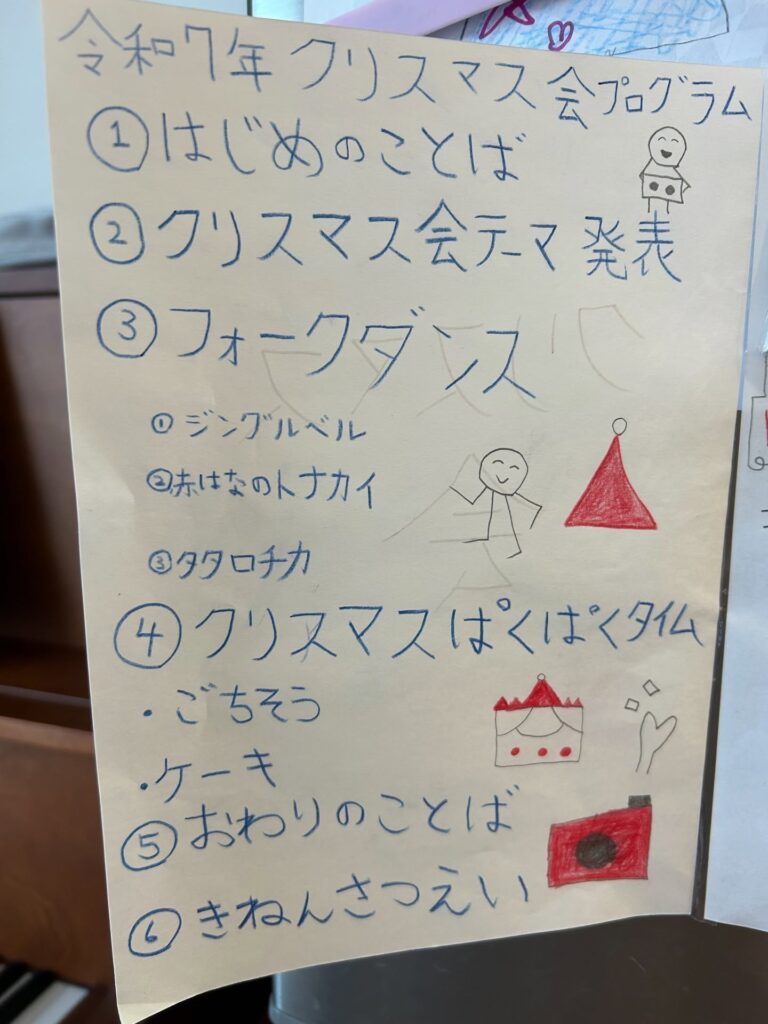 令和7年 クリスマス会プログラム
①はじめのことば
②クリスマス会テーマ 発表
③フォークダンス
①ジングルベル
②赤はなのトナカイ
③タタロチカ
④クリスマスぱくぱくタイム
・ごちそう
・ケーキ
⑤おわりのことば
⑥きねんさつえい